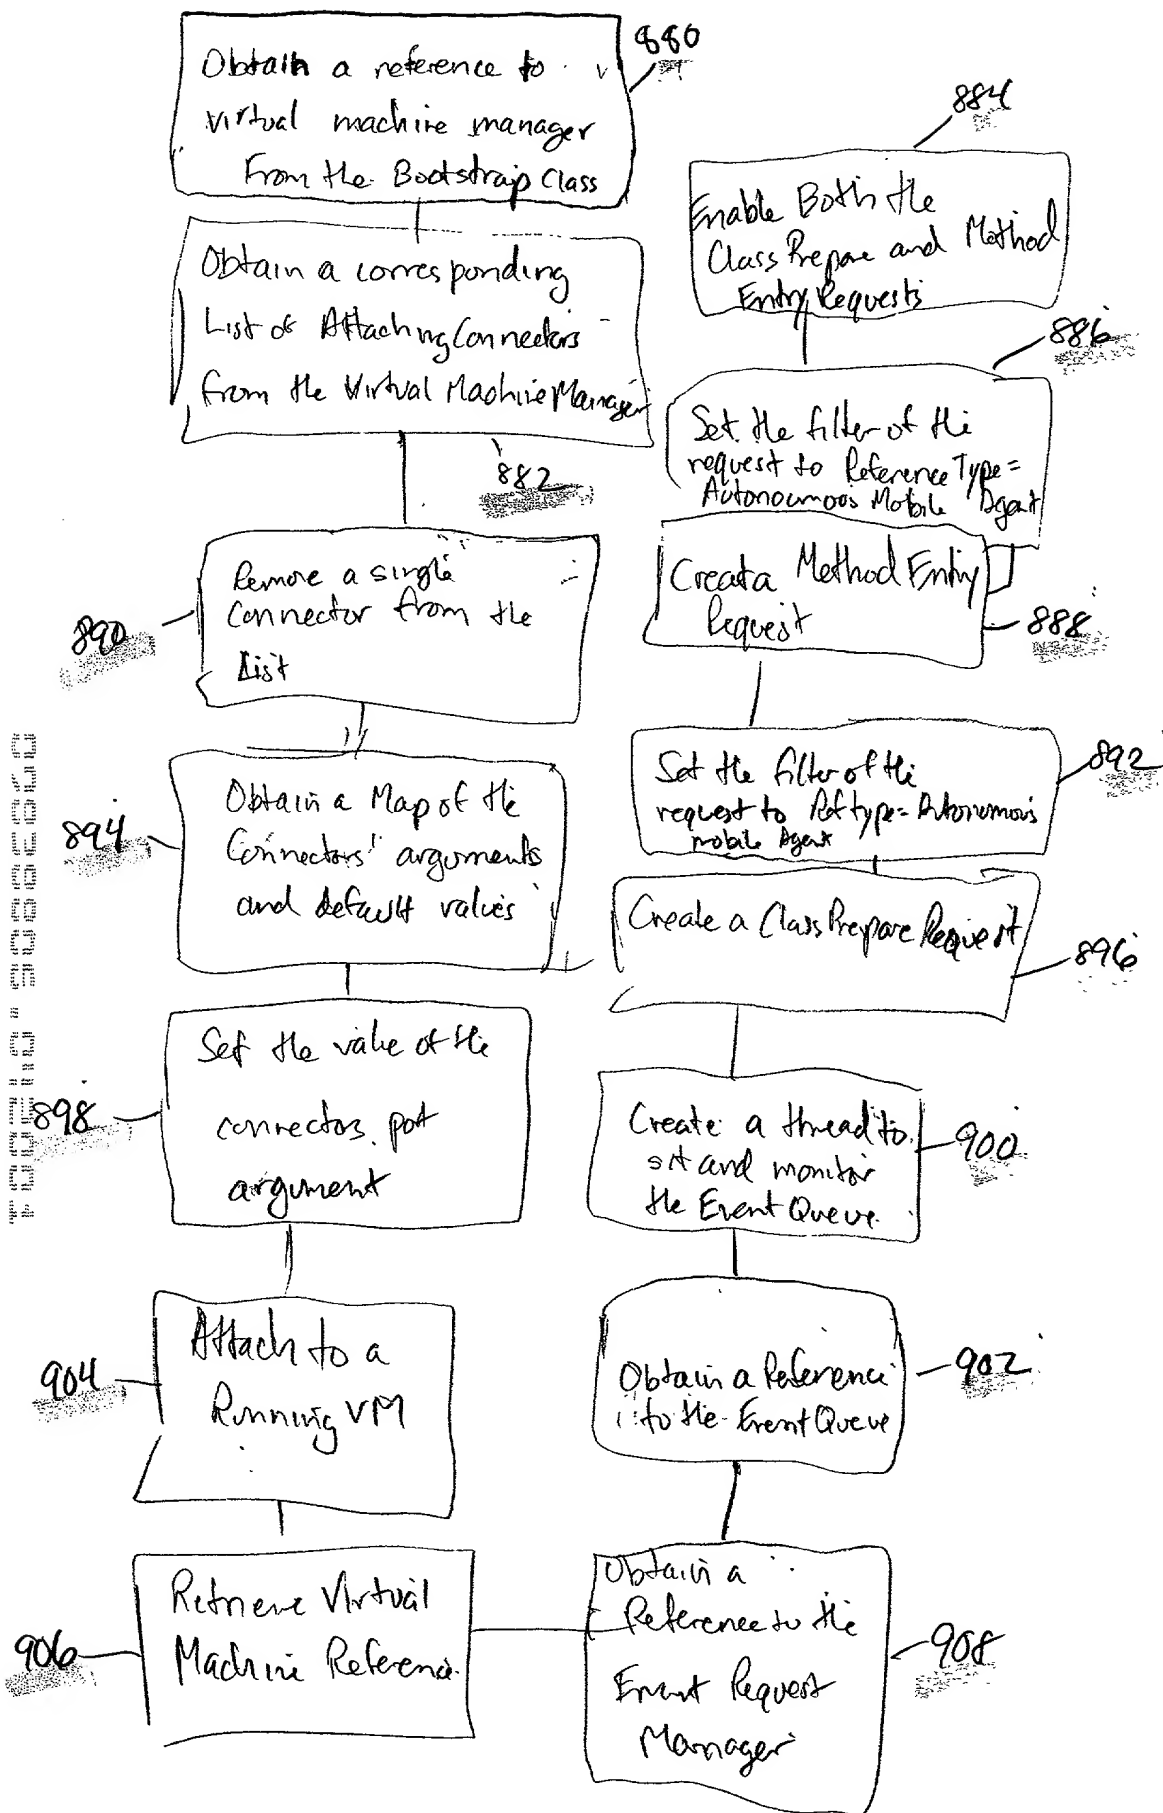 880
Obtain a reference to
virtual machine manager
from the Bootstrap Class
Obtain a corresponding
List of Attaching Connectors
from the Virtual Machine Manager
882
Remove a single
Connector from the
List
890
Obtain a Map of the
Connectors' arguments
and default values
894
Set the value of the
connectors port
argument
898
Attach to a
Running VM
904
Retrieve Virtual
Machine Reference
906
884
Enable Both the
Class Prepare and Method
Entry Requests
886
Set the filter of the
request to Reference Type=
Autonoumous Mobile Agent
Create a Method Entry
Request
888
Set the filter of the
request to Ref type= Autonomous
mobile Agent
892
Create a Class Prepare Request
896
Create a thread to
sit and monitor
the Event Queue
900
Obtain a Reference
to the Event Queue
902
Obtain a
Reference to the
Event Request
Manager
908